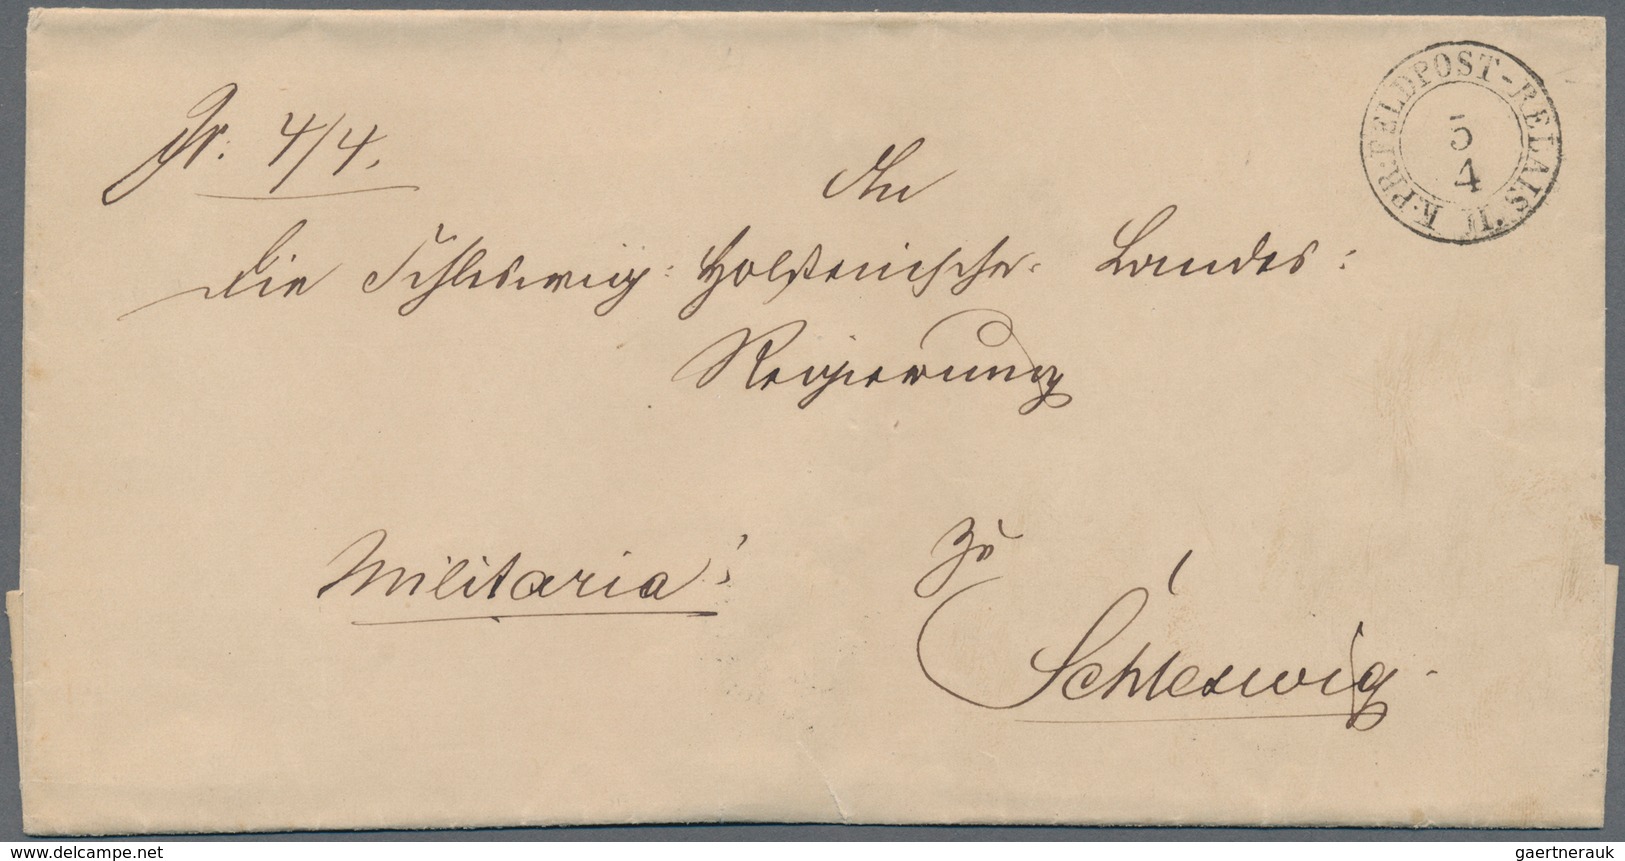 K:PR:FELDPOST-RELAIS. II
5
4
Pr. 4/4.
An
die Schleswig-Holsteinische Landes:
Regierung
Militaria!
zu
Schleswig.
www.delcampe.net
gaertnerauk